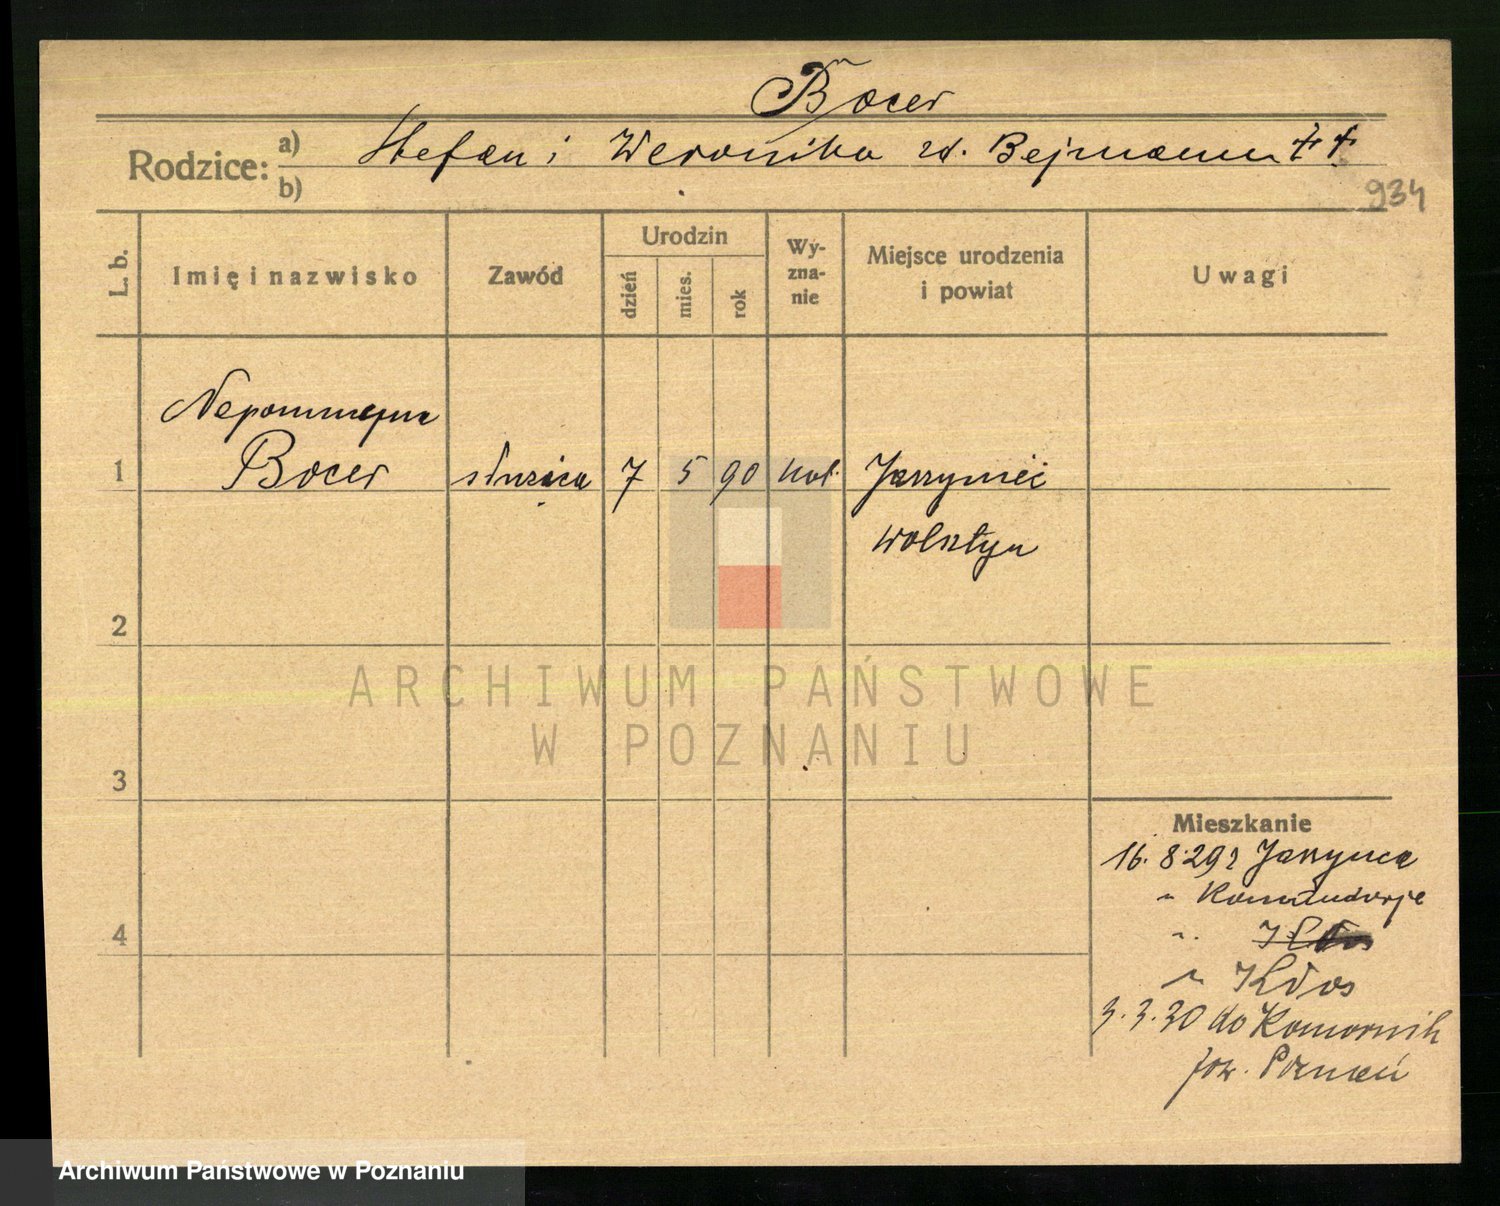 Bocer
Rodzice: a) Stefan i Weronika zd. Bejmann ‡ ‡
b)
934
L. b.
Imię i nazwisko
Zawód
Urodzin
dzień
mies.
rok
Wy-
zna-
nie
Miejsce urodzenia
i powiat
Uwagi
Nepomucena
1 Bocer służąca 7 5 90 kat.
Wolsztyn
2
3
4
ARCHIWUM PAŃSTWOWE
W POZNANIU
Mieszkanie
16. 8. 29 z
" Komandorje
3. 3. 30 do Komornik
pow. Poznań
Archiwum Państwowe w Poznaniu